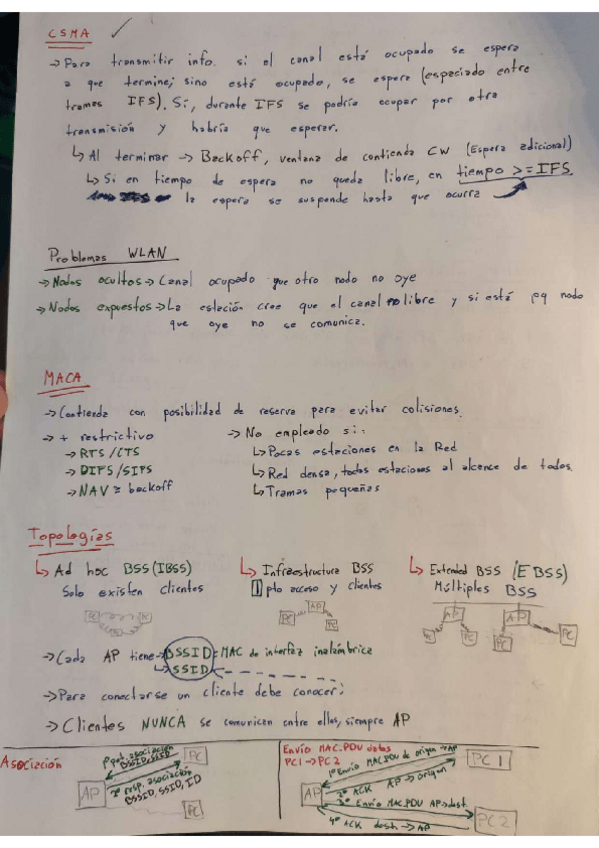 CSMA
→ Para transmitir info. si el canal está ocupado se espera
a que termine; sino está ocupado, se espera (espaciado entre
tramas IFS). Si, durante IFS se podría ocupar por otra
transmisión y habría que esperar.
↳ Al terminar → Backoff, ventana de contienda CW (Espera adicional)
↳ Si en tiempo de espera no queda libre, en tiempo >= IFS
la espera se suspende hasta que ocurra
Problemas WLAN
→ Nodos ocultos → Canal ocupado que otro nodo no oye
→ Nodos expuestos → La estación cree que el canal no libre y si está pq nodo
que oye no se comunica.
MACA
→ Contienda con posibilidad de reserva para evitar colisiones.
→ + restrictivo
→ RTS/CTS
→ DIFS/SIFS
→ NAV ≈ backoff
→ No empleado si:
↳ Pocas estaciones en la Red
↳ Red densa, todas estaciones al alcance de todos.
↳ Tramas pequeñas
Topologías
↳ Ad hoc BSS (IBSS)
Solo existen clientes
PC PC PC
↳ Infraestructura BSS
1 pto acceso y clientes
PC AP PC
↳ Extended BSS (EBSS)
Múltiples BSS
AP AP
PC PC PC PC
→ Cada AP tiene → BSSID = MAC de interfaz inalámbrica
↳ SSID
→ Para conectarse un cliente debe conocer:
→ Clientes NUNCA se comunican entre ellos, siempre AP
Asociación
1º pet. asociación
BSSID, SSID
PC
AP
2º resp. asociación
BSSID, SSID, ID
PC
Envío MAC.PDU datos
PC1 → PC2
1º Envío MAC.PDU de origen → AP
PC 1
AP
2º ACK AP → origen
3º Envío MAC.PDU AP → dest.
4º ACK dest. → AP
PC 2